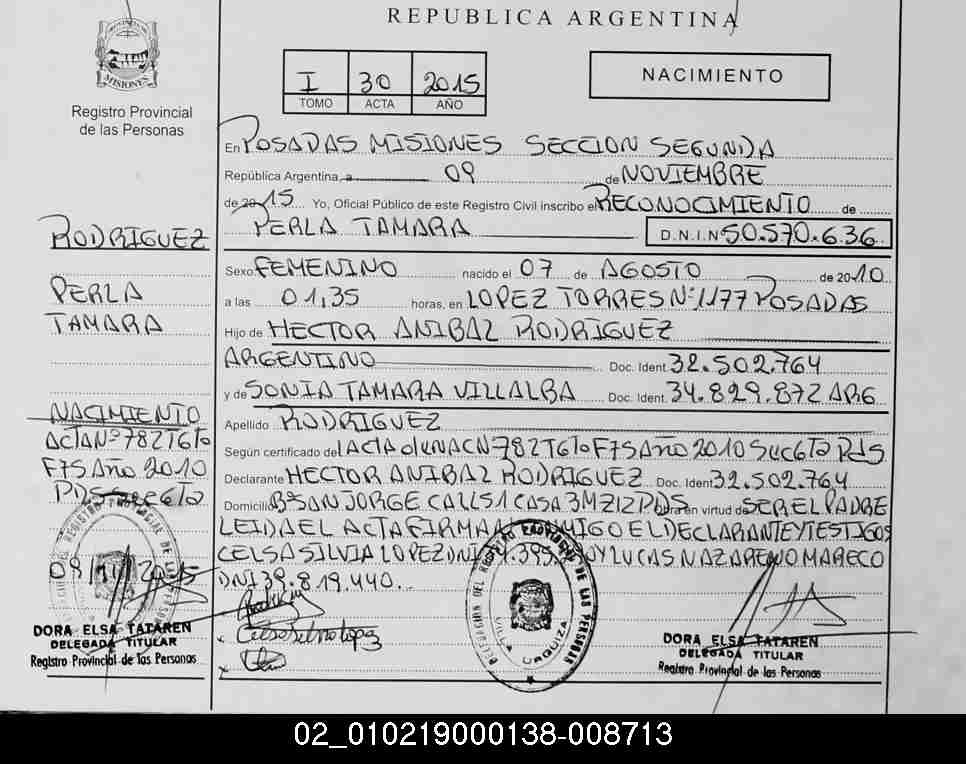 REPUBLICA ARGENTINA
MISIONES
Registro Provincial
de las Personas
I 30 2015
TOMO ACTA AÑO
NACIMIENTO
En POSADAS MISIONES SECCION SEGUNDA
República Argentina, a 09 de NOVIEMBRE
de 2015 Yo, Oficial Público de este Registro Civil inscribo el RECONOCIMIENTO de
PERLA TAMARA D.N.I.Nº 50.570.636
Sexo FEMENINO nacido el 07 de AGOSTO de 2010
a las 01,35 horas, en LOPEZ TORRES Nº 1177 POSADAS
Hijo de HECTOR ANIBAL RODRIGUEZ
ARGENTINO Doc. Ident. 32.502.764
y de SONIA TAMARA VILLALBA Doc. Ident. 34.829.872 ARG
Apellido RODRIGUEZ
Según certificado de ACTA NAC Nº 782 T6to F75 Año 2010 Suc 6ta Pds
Declarante HECTOR ANIBAL RODRIGUEZ Doc. Ident 32.502.764
Domicilio Bº SAN JORGE CALLE 1 CASA 3 MZ 12 PDS Obra en virtud de SER EL PADRE
LEIDA EL ACTA FIRMAN CONMIGO EL DECLARANTE Y TESTIGOS
CELSA SILVIA LOPEZ DNI Y LUCAS NAZARENO MARECO
DNI 39.819.440
RODRIGUEZ
PERLA
TAMARA
NACIMIENTO
ACTA Nº 782 T6to
F75 Año 2010
PDS
09/11/2015
DORA ELSA TATAREN
DELEGADA TITULAR
Registro Provincial de las Personas
Celsa Silvia Lopez
DELEGACION DEL REGISTRO PROVINCIAL DE LAS PERSONAS
VILLA URQUIZA
DORA ELSA TATAREN
DELEGADA TITULAR
Registro Provincial de las Personas
02_010219000138-008713